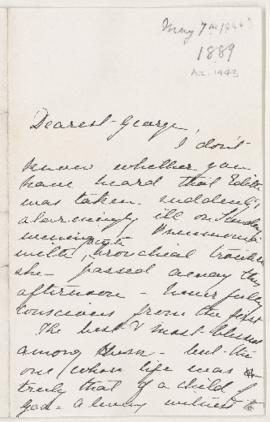 May 7th 1889
1889
Az. 1443
Dearest George,
I don't
know whether you
have heard that Edith
was taken suddenly,
alarmingly ill on Sunday
morning
with bronchial trouble
she passed away this
afternoon - never fully
conscious from the first
The best & most blessed
among them - but the
one whose life was
truly that of a child of
god - a living witness to